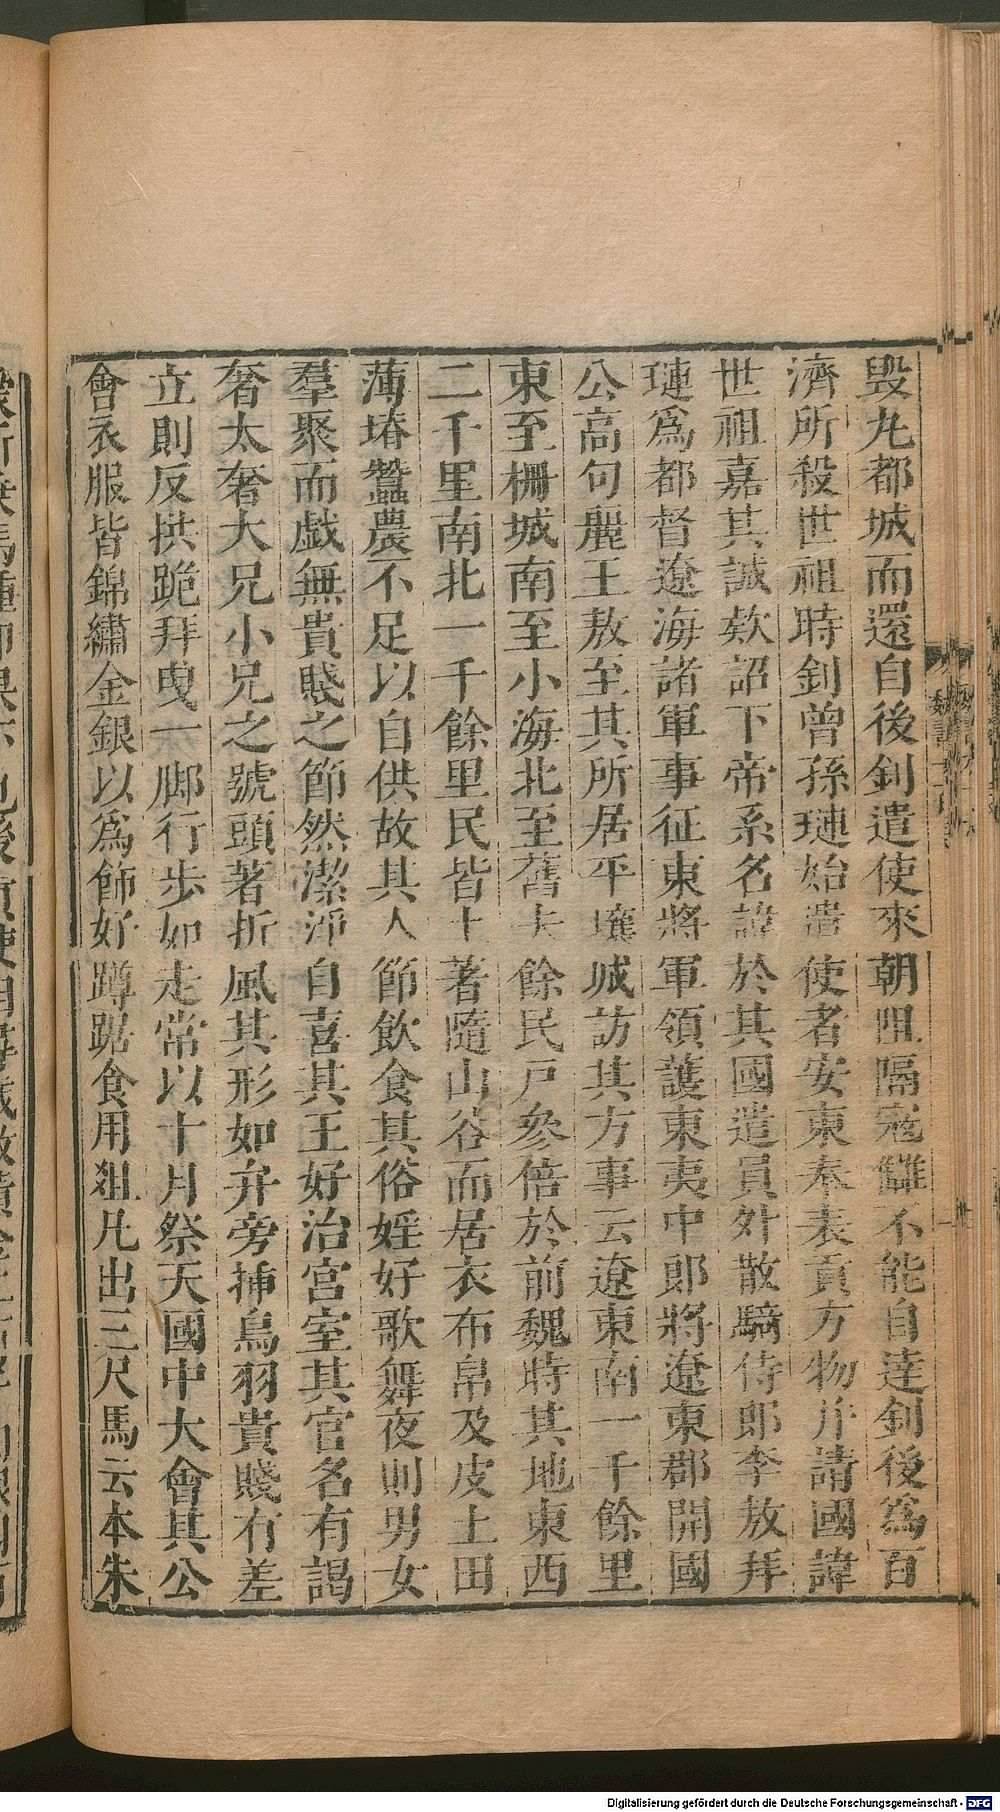 毀丸都城而還自後釗遣使來朝阻隔寇讎不能自達釗後爲百
濟所殺世祖時釗曾孫璉始遣使者安東奉表貢方物并請國諱
世祖嘉其誠欵詔下帝系名諱於其國遣員外散騎侍郎李敖拜
璉爲都督遼海諸軍事征東將軍領護東夷中郎將遼東郡開國
公高句麗王敖至其所居平壤城訪其方事云遼東南一千餘里
東至柵城南至小海北至舊夫餘民戶參倍於前魏時其地東西
二千里南北一千餘里民皆土著隨山谷而居衣布帛及皮土田
薄塉蠶農不足以自供故其人節飲食其俗婬好歌舞夜則男女
羣聚而戯無貴賤之節然潔淨自喜其王好治宮室其官名有謁
奢太奢大兄小兄之號頭著折風其形如弁旁挿鳥羽貴賤有差
立則反拱跪拜曳一脚行步如走常以十月祭天國中大會其公
會衣服皆錦繡金銀以爲飾好蹲踞食用俎凡出三尺馬云本朱
Digitalisierung gefördert durch die Deutsche Forschungsgemeinschaft - DFG